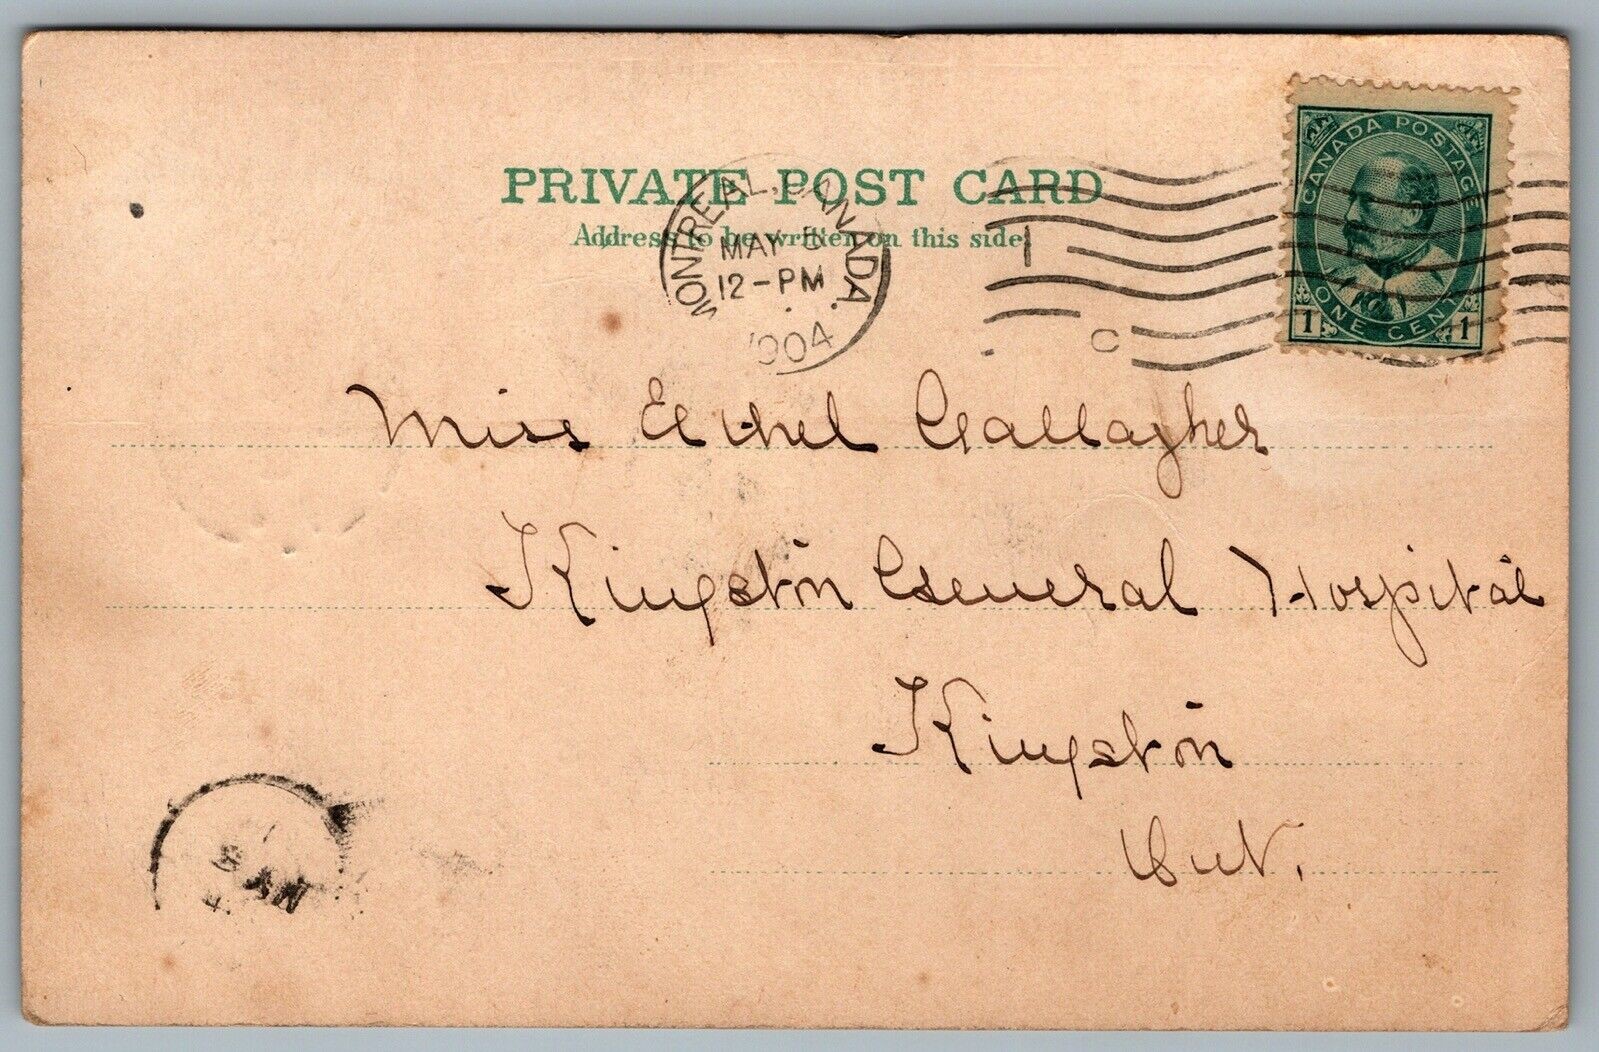 PRIVATE POST CARD
Address to be written on this side.
MONTREAL, CANADA.
MAY
12-PM
1904
1
C
CANADA POSTAGE
ONE CENT
1 1
Miss Ethel Gallagher
Kingston General Hospital
Kingston
Ont.
MY